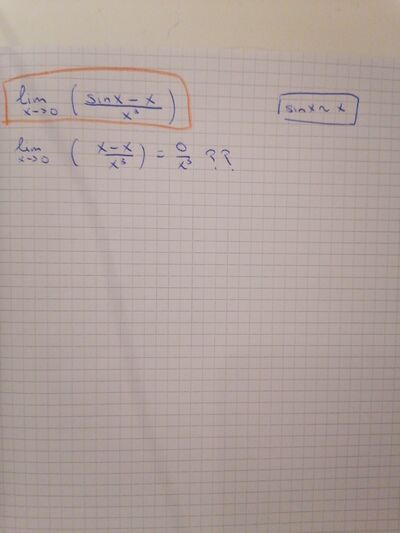 lim x→0 ( (sin x − x) / x³ )
sin x ~ x
lim x→0 ( (x − x) / x³ ) = 0 / x³ ??